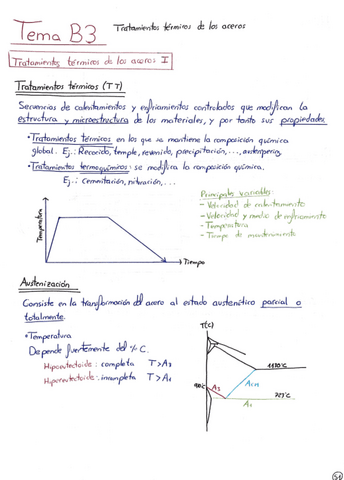 Tema B3
Tratamientos térmicos de los aceros
Tratamientos térmicos de los aceros I
Tratamientos térmicos (TT)
Secuencias de calentamientos y enfriamientos controlados que modifican la
estructura y microestructura de los materiales, y por tanto sus propiedades.
• Tratamientos térmicos en los que se mantiene la composición química
global. Ej.: Recocido, temple, revenido, precipitación, ..., austempering.
• Tratamientos termoquímicos: se modifica la composición química.
Ej.: Cementación, nituración, ...
Principales variables:
- Velocidad de calentamiento
- Velocidad y medio de enfriamiento
- Temperatura
- Tiempo de mantenimiento
Temperatura
Tiempo
Austenización
Consiste en la transformación del acero al estado austenítico parcial o
totalmente.
• Temperatura
Depende fuertemente del % C.
Hipoeutectoide: completa T > A3
Hipereutectoide: incompleta T > A1
T(C)
1130°C
A3
Acm
723°C
A1